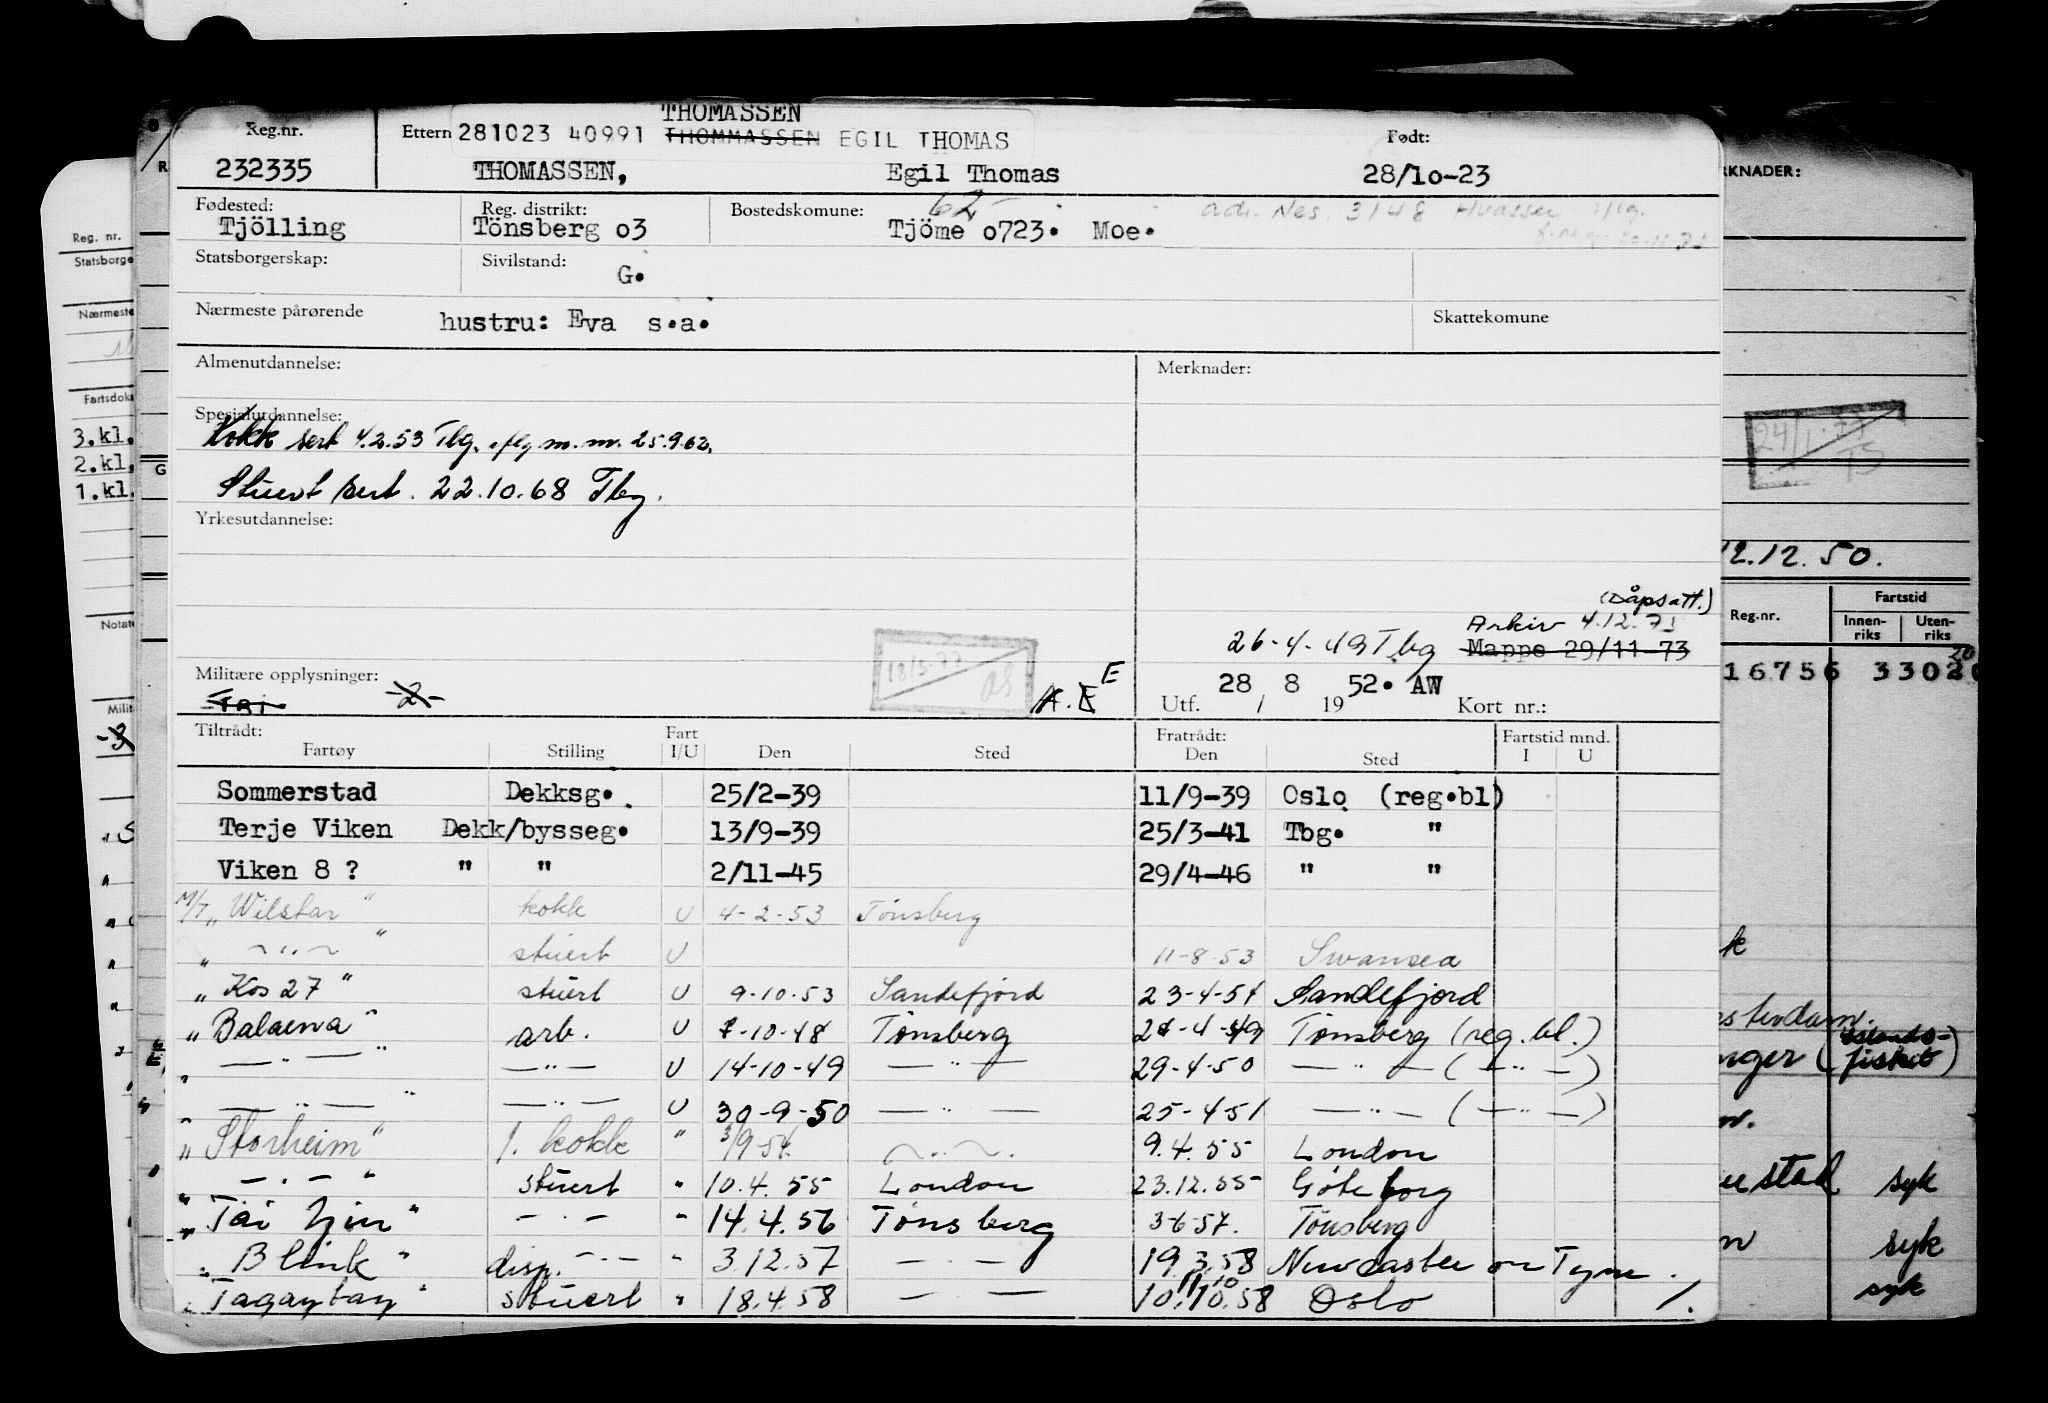 THOMASSEN
Reg.nr. Ettern 281023 40991 THOMMASSEN EGIL THOMAS Født:
232335 THOMASSEN, Egil Thomas 28/10-23
Fødested: Reg. distrikt: Bostedskomune: 62
Tjölling Tönsberg o3 Tjöme o723. Moe. adr. Nes. 3148 Hvasser
Statsborgerskap: Sivilstand: G.
Nærmeste pårørende hustru: Eva s.a. Skattekomune
Almenutdannelse: Merknader:
Spesialutdannelse:
Kokk sert 4.2.53 Tbg. m.m. 25.9.62.
Stuert sert. 22.10.68 Tbg.
Yrkesutdannelse:
(Dåpsatt.)
Arkiv 4.12.73
26-4-49 Tbg Mappe 29/11-73
Militære opplysninger: -2- 18/5-77 E
28 8 52. AW
Utf. / 19 Kort nr.:
Tiltrådt: Fart Fratrådt: Fartstid mnd.
Fartøy Stilling I/U Den Sted Den Sted I U
Sommerstad Dekksg. 25/2-39 11/9-39 Oslo (reg.bl)
Terje Viken Dekk/bysseg. 13/9-39 25/3-41 Tbg. "
Viken 8 ? " " 2/11-45 29/4-46 " "
M/T „Wilstar" kokk U 4-2-53 Tönsberg
„ ~"~ " stuert U 11-8-53 Swansea
„Kos 27" stuert U 9-10-53 Sandefjord 23-4-54 Sandefjord
„Balaena" arb. U 7-10-48 Tønsberg 27-4-49 Tønsberg (reg.bl.)
„ —"— " —"— U 14-10-49 —"— 29-4-50 —"— (—"—)
„ —"— " —"— U 30-9-50 —"— 25-4-51 —"— (—"—)
„Storheim" 1. kokk " 3/9-54 ~"~. 9.4.55 London
„ —.— " stuert " 10.4.55 London 23.12.55 Göteborg
„Tai Yin" —.— " 14.4.56 Tønsberg 3-6-57. Tønsberg
„Blink" disp. —.— " 3.12.57 —.— 19.3.58 Newcastle on Tyne.
„Tagaytay" stuert " 18.4.58 — — 10.10.58 Oslo /.
Reg. nr.
Statsborge
Nærmeste
Fartsdok
3.kl.
2.kl.
1.kl.
Notate
Milit
-3
RKNADER:
24/1-77
12.12.50.
Reg.nr. Fartstid
Innenriks Utenriks
16756 3302
(Islandsfisket)
syk
syk
syk